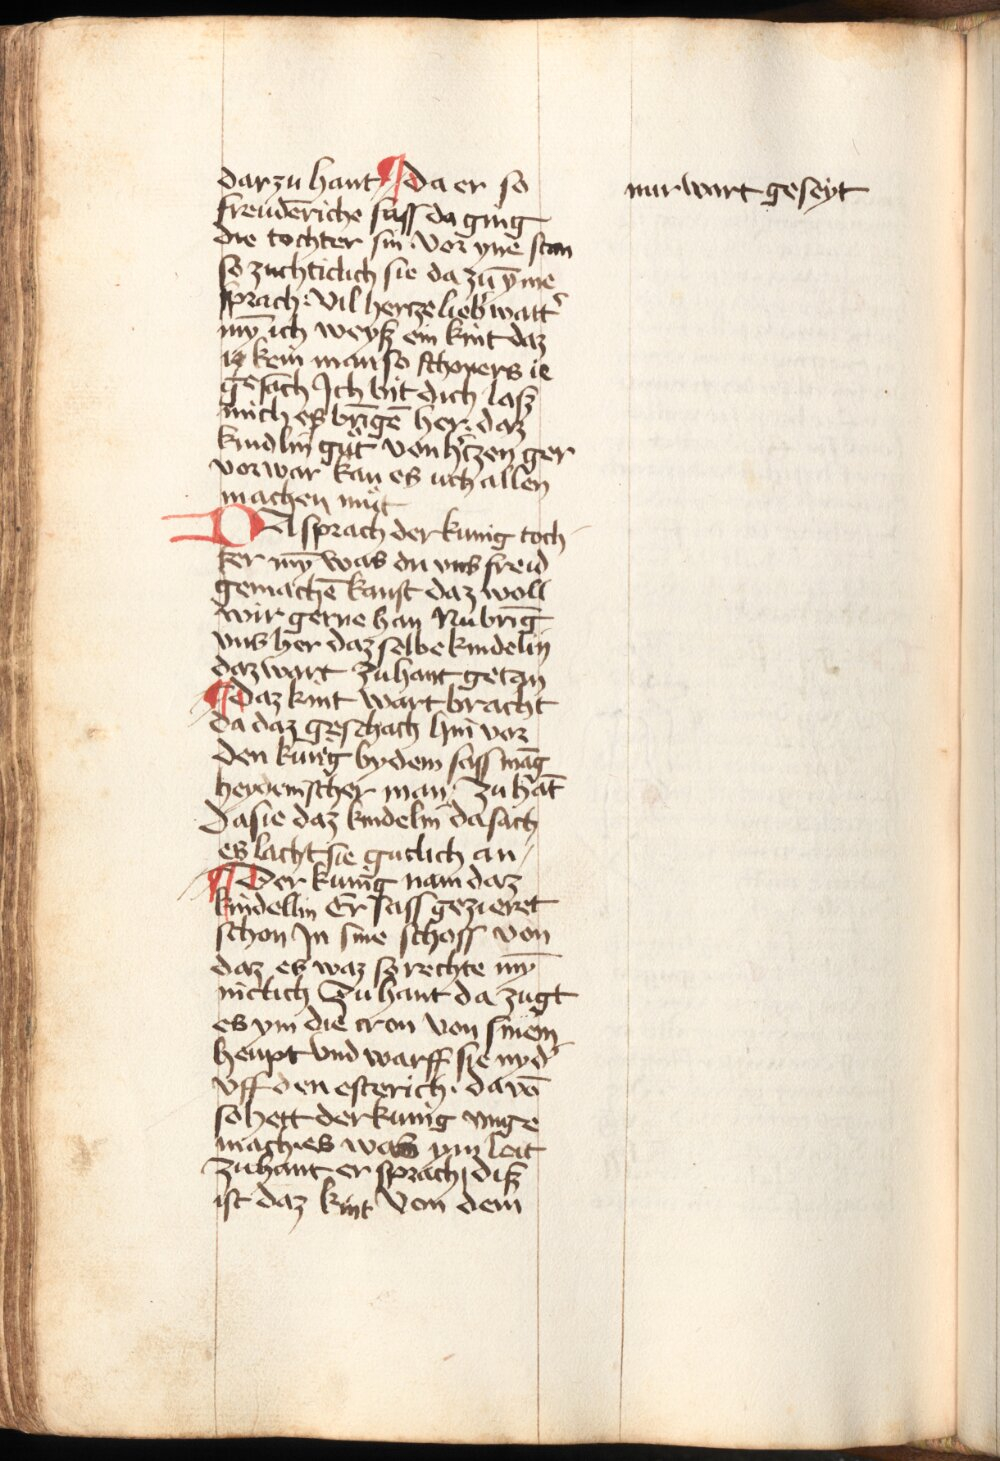 darzu hant ¶ da er so
freuderiche sass da ging
die tochter sin vor yne stan
so zuchticlich sie da zū yme
sprach: vil hertze lieb' watt'
mȳ ich weyß ein kint daz
kein man so schoners ie
gesach Ich bit dich laß
mich es brīgē her: daz
kindlin gůt von h'tzen ger
vor war kan es uch allen
machen můt
DA sprach der kunig toch
ter mȳ was du vns freud
gemachē kanst daz woll
wir gerne han Nu brīg
vns her daz selbe kindelin
daz wart zu hant getan
¶ Daz kint wart bracht
da daz geschach hin vor
den kunīg by dem sass māg
heydenischer man / zu hāt
Da sie daz kindelin da sach
es lacht sie gutlich an /
¶ Der kunīg nam daz
kindellin Er sass gezieret
schon In sine schoss von
daz es waz so rechte mȳ
niclich Zu hant da zugt
es ym die cron von sinem
heupt vnd warff sie nyd'
vff den esterich. da vō
so hett der kunig vnge
mach. es was ym leit
zu hant er sprach / diß
ist daz kint von dem
mir wart geseyt